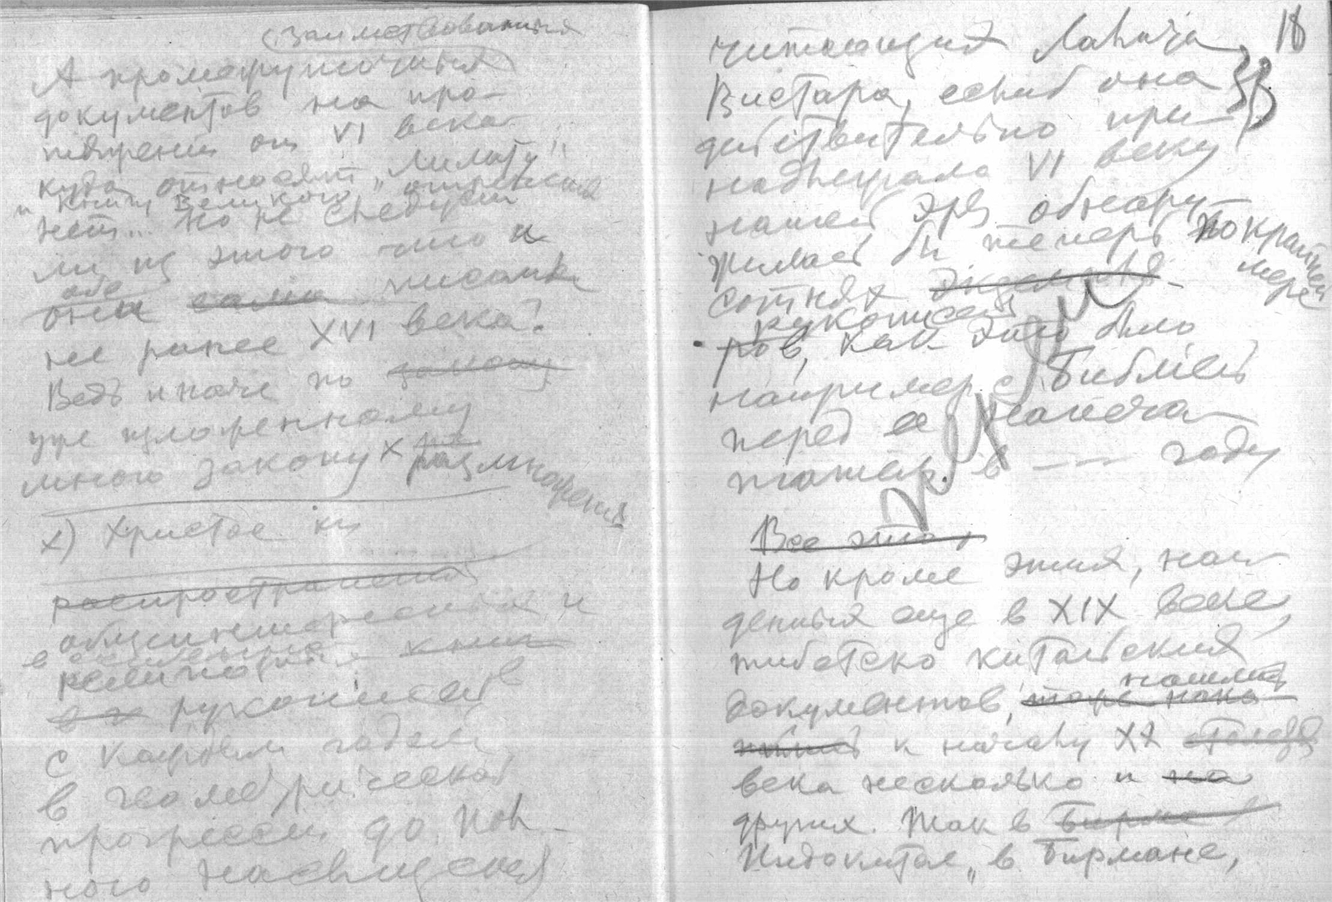 (Заимствования
А промежуточных
документов на про-
тяжении от VI века
куда относят „Лалиту"
и книгу Великого отречения
нет... Но не следует
ли из этого что и
обе
они сами писаны
не ранее XVI века?
Ведь иначе по закону
уже изложенному
много закону x размножения
x) Христос кн
распространения
общеинтересных и
религиозных книг
е х рукописей
с каждым годом
в геометрической
прогрессии до пол-
ного насыщения
18
читающих Лалита
Вистара, если б она
действительно при-
надлежала VI веку
нашей эры обнару-
жилась бы теперь по крайней
мере
сотнях экземпля-
рукописей
ров, как это было
например с Библией
перед ее напеча-
танием в —— году
Все это,
Но кроме этих, най-
денных еще в XIX веке,
тибетско китайских
документов,
нашлись
к началу XX столетия
века несколько и на
других. Так в Бирме
Индокитае, в Бирмане,